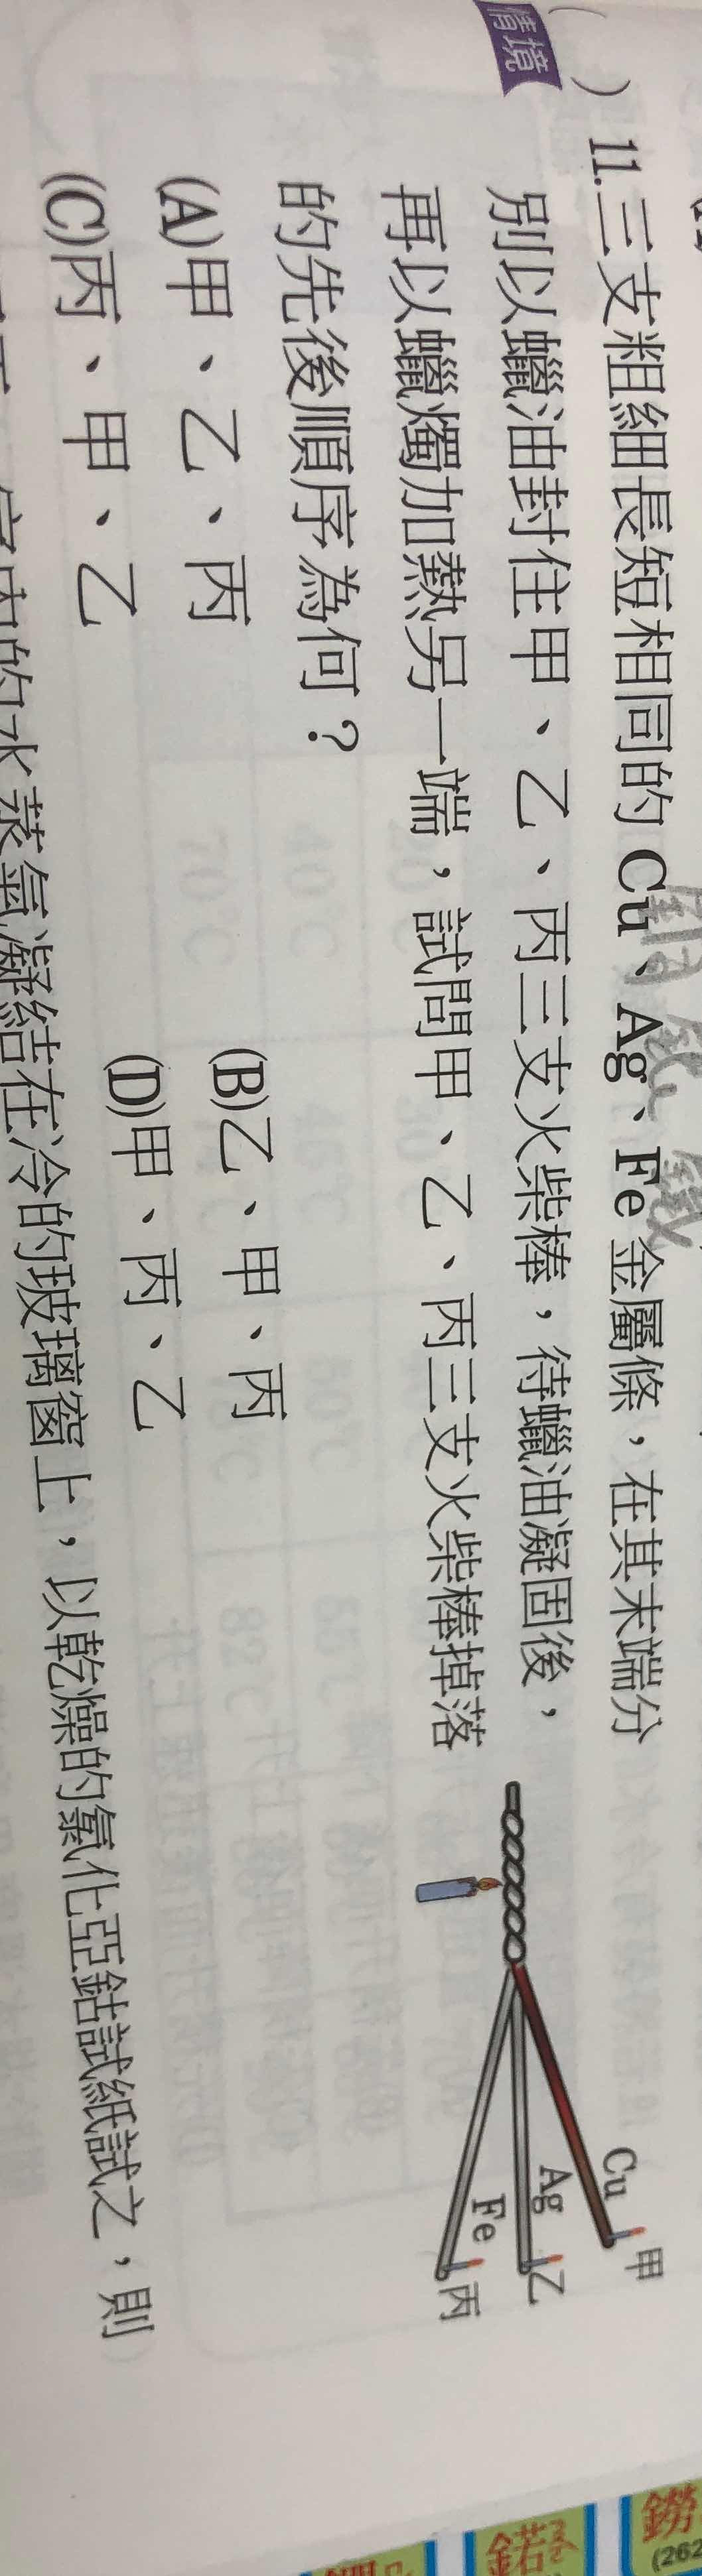 情境
( )11.三支粗細長短相同的 Cu、Ag、Fe 金屬條，在其末端分
別以蠟油封住甲、乙、丙三支火柴棒，待蠟油凝固後，
再以蠟燭加熱另一端，試問甲、乙、丙三支火柴棒掉落
的先後順序為何？
(A)甲、乙、丙 (B)乙、甲、丙
(C)丙、甲、乙 (D)甲、丙、乙
銅 銀 鐵
Cu 甲
Ag 乙
Fe 丙
內的水蒸氣凝結在冷的玻璃窗上，以乾燥的氯化亞鈷試紙試之，則
鐒
(262
鍩